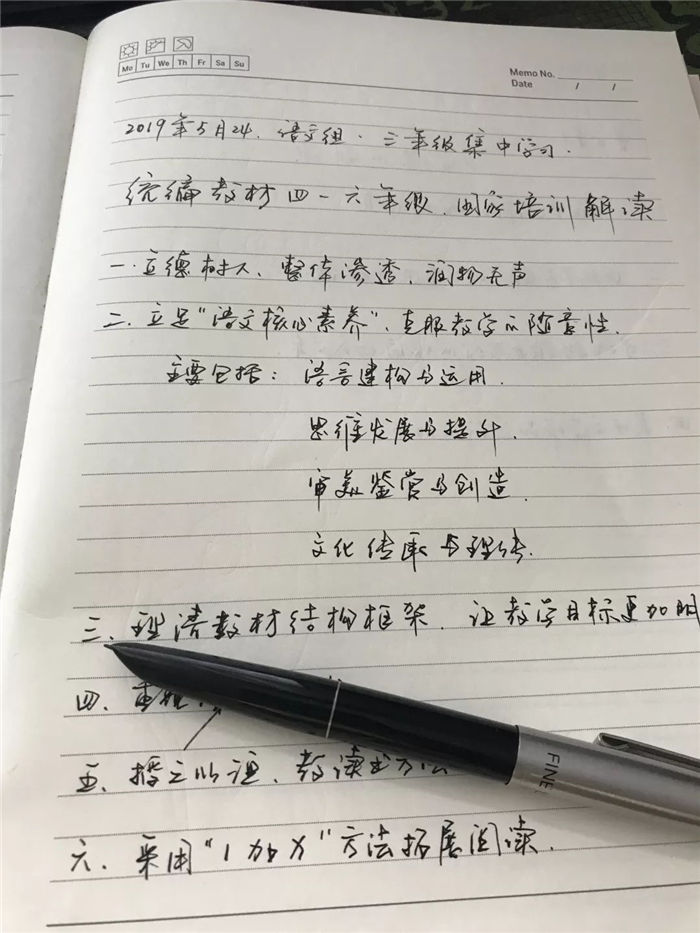 Mo Tu We Th Fr Sa Su
Memo No.
Date / /
2019年5月24. 语文组·三年级集中学习.
统编教材四-六年级.国家培训解读
一.立德树人、整体渗透,润物无声
二.立足"语文核心素养",克服教学的随意性.
主要包括:语言建构与运用.
思维发展与提升.
审美鉴赏与创造.
文化传承与理解.
三、理清教材结构框架.让教学目标更加明
四、重视
五、授之以渔、教读书方法
六、采用"1加X"方法拓展阅读.
FINE